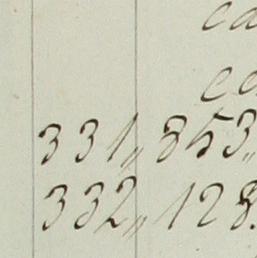 ca
ca
331,, 853,,
332,, 128.